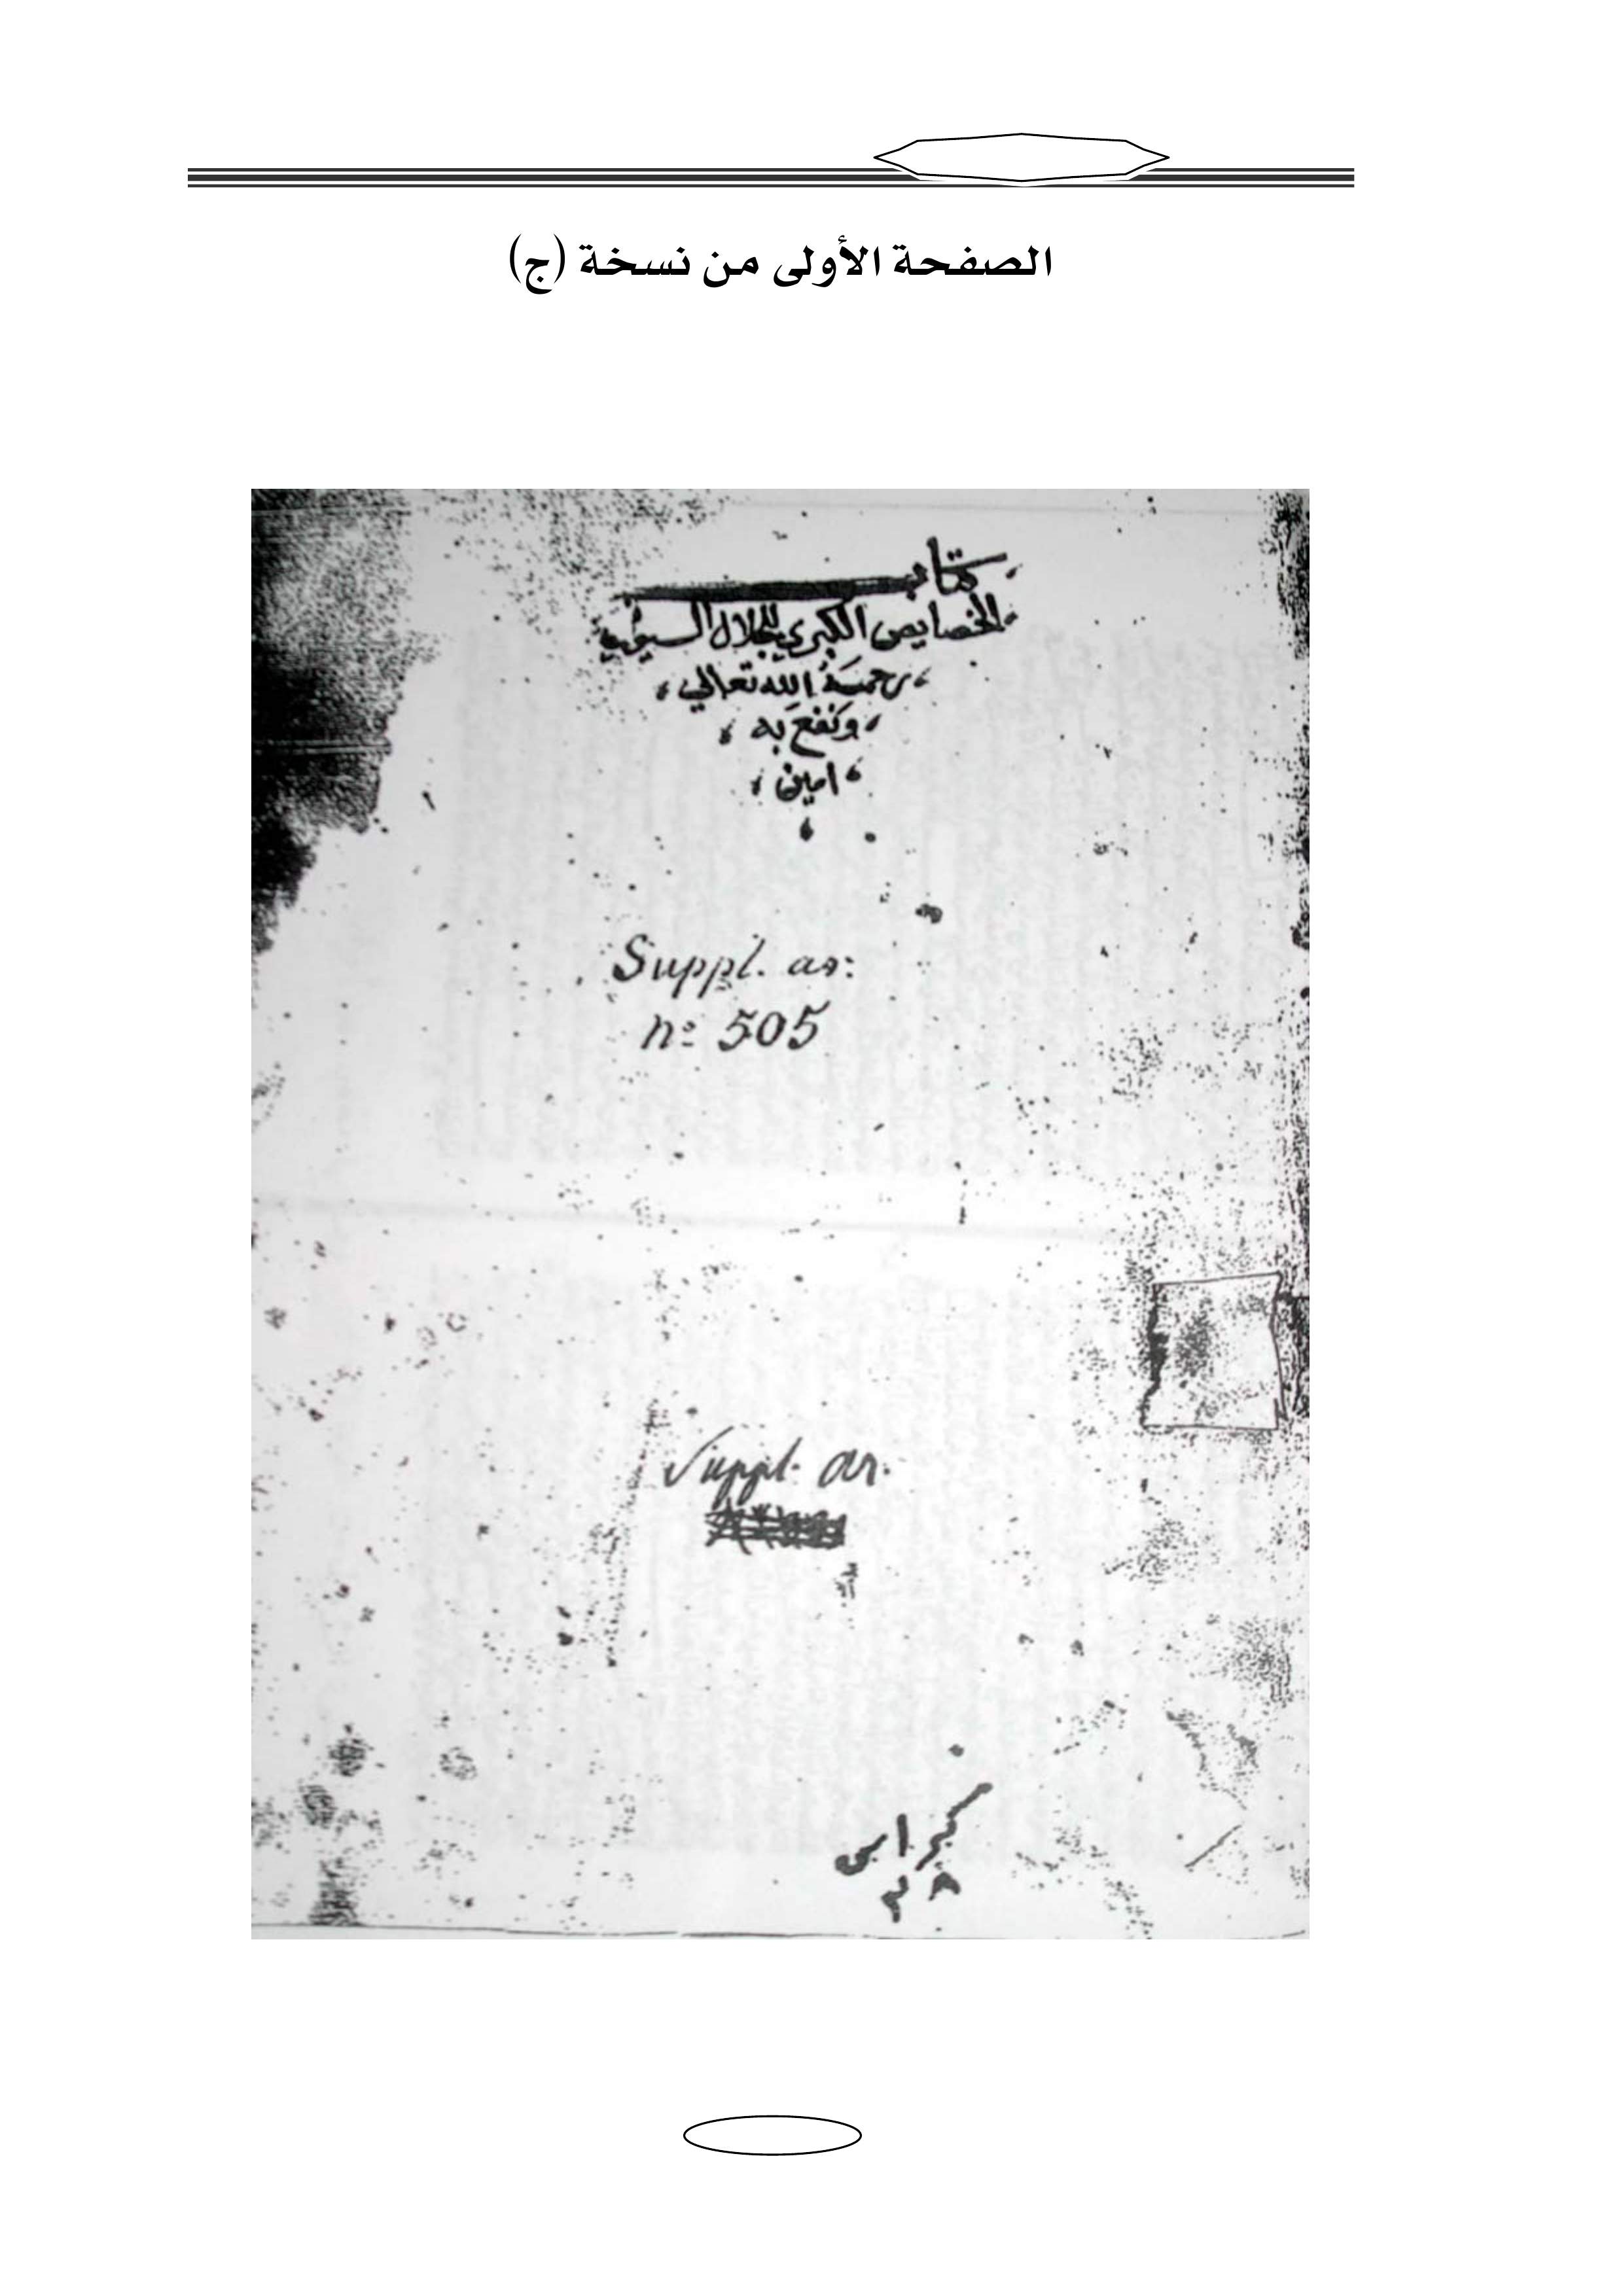 الصفحة الأولى من نسخة (ج)
كتاب
الخصايص الكبري للجلال السيوطي
رحمه الله تعالي
ونفع به
امين
Suppl. ar:
nº 505
Suppl. ar.